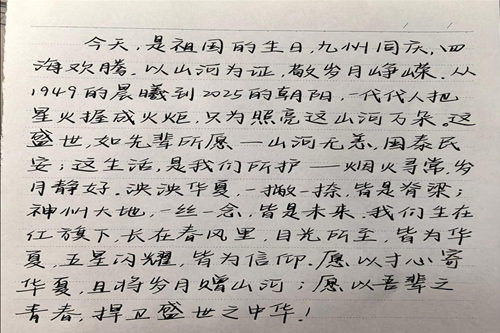 今天，是祖国的生日，九州同庆，四
海欢腾。以山河为证，敬岁月峥嵘。从
1949的晨曦到2025的朝阳，一代代人把
星火握成火炬，只为照亮这山河万朵。这
盛世，如先辈所愿——山河无恙，国泰民
安；这生活，是我们所护——烟火寻常，岁
月静好。泱泱华夏，一撇一捺，皆是脊梁；
神州大地，一丝一念，皆是未来。我们生在
红旗下，长在春风里，目光所至，皆为华
夏，五星闪耀，皆为信仰。愿以寸心寄
华夏，且将岁月赠山河；愿以吾辈之
青春，捍卫盛世之中华！